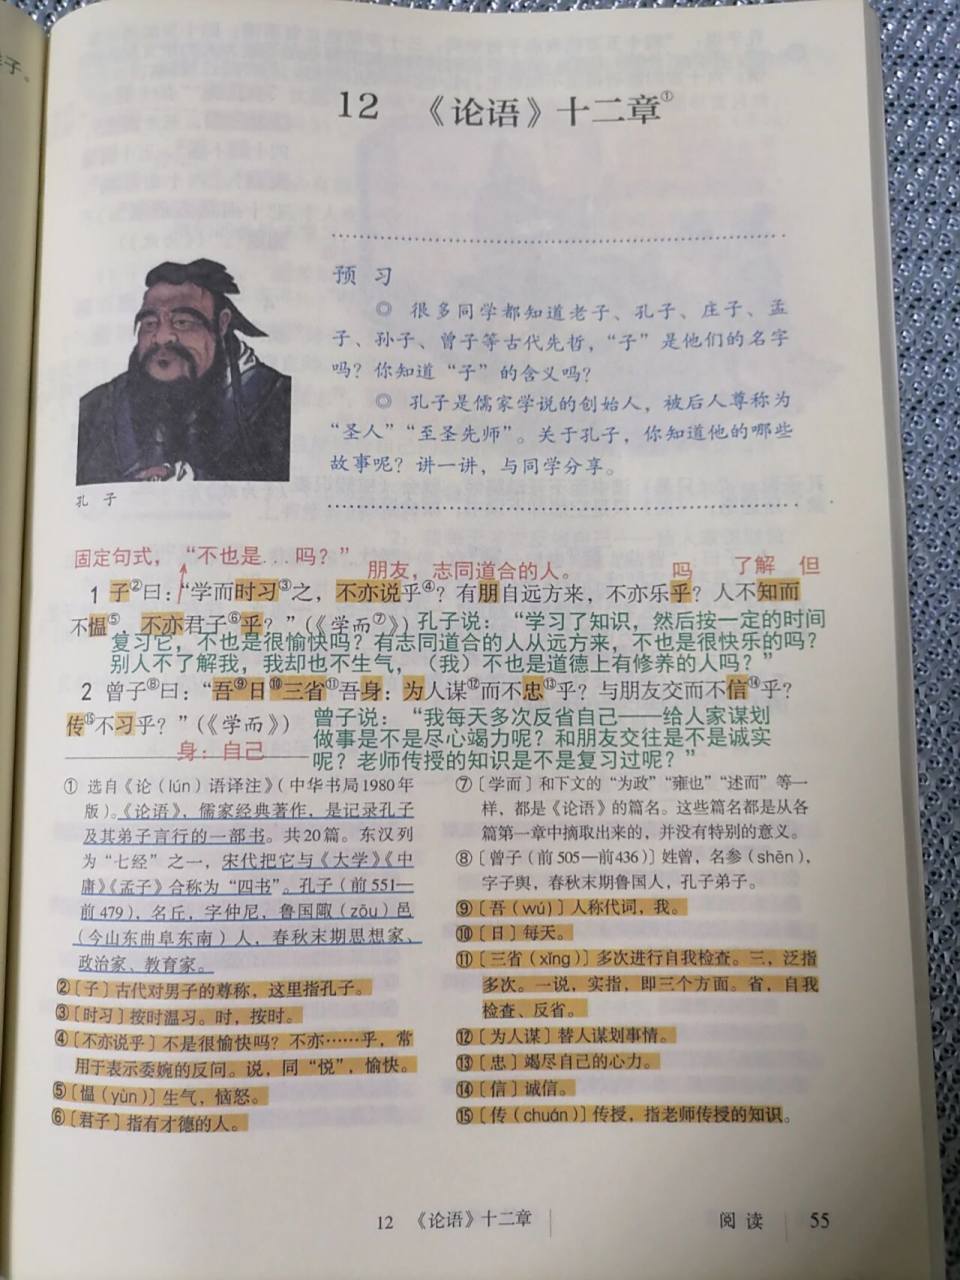 子。
12 《论语》十二章①
预 习
◎ 很多同学都知道老子、孔子、庄子、孟
子、孙子、曾子等古代先哲，“子”是他们的名字
吗？你知道“子”的含义吗？
◎ 孔子是儒家学说的创始人，被后人尊称为
“圣人”“至圣先师”。关于孔子，你知道他的哪些
故事呢？讲一讲，与同学分享。
孔 子
固定句式，“不也是....吗？”
朋友，志同道合的人。
吗 了解 但
1 子②曰：“学而时习③之，不亦说乎④？有朋自远方来，不亦乐乎？人不知而
不愠⑤，不亦君子⑥乎？”（《学而⑦》）
孔子说：“学习了知识，然后按一定的时间
复习它，不也是很愉快吗？有志同道合的人从远方来，不也是很快乐的吗？
别人不了解我，我却也不生气，（我）不也是道德上有修养的人吗？”
2 曾子⑧曰：“吾⑨日⑩三省⑪吾身：为人谋⑫而不忠⑬乎？与朋友交而不信⑭乎？
传⑮不习乎？”（《学而》）
曾子说：“我每天多次反省自己——给人家谋划
做事是不是尽心竭力呢？和朋友交往是不是诚实
呢？老师传授的知识是不是复习过呢？”
身：自己
① 选自《论（lún）语译注》（中华书局1980年
版）。《论语》，儒家经典著作，是记录孔子
及其弟子言行的一部书。共20篇。东汉列
为“七经”之一，宋代把它与《大学》《中
庸》《孟子》合称为“四书”。孔子（前551—
前479），名丘，字仲尼，鲁国陬（zōu）邑
（今山东曲阜东南）人，春秋末期思想家、
政治家、教育家。
②〔子〕古代对男子的尊称，这里指孔子。
③〔时习〕按时温习。时，按时。
④〔不亦说乎〕不是很愉快吗？不亦……乎，常
用于表示委婉的反问。说，同“悦”，愉快。
⑤〔愠（yùn）〕生气，恼怒。
⑥〔君子〕指有才德的人。
⑦〔学而〕和下文的“为政”“雍也”“述而”等一
样，都是《论语》的篇名。这些篇名都是从各
篇第一章中摘取出来的，并没有特别的意义。
⑧〔曾子（前505—前436）〕姓曾，名参（shēn），
字子舆，春秋末期鲁国人，孔子弟子。
⑨〔吾（wú）〕人称代词，我。
⑩〔日〕每天。
⑪〔三省（xǐng）〕多次进行自我检查。三，泛指
多次。一说，实指，即三个方面。省，自我
检查、反省。
⑫〔为人谋〕替人谋划事情。
⑬〔忠〕竭尽自己的心力。
⑭〔信〕诚信。
⑮〔传（chuán）〕传授，指老师传授的知识。
12 《论语》十二章
阅 读 55